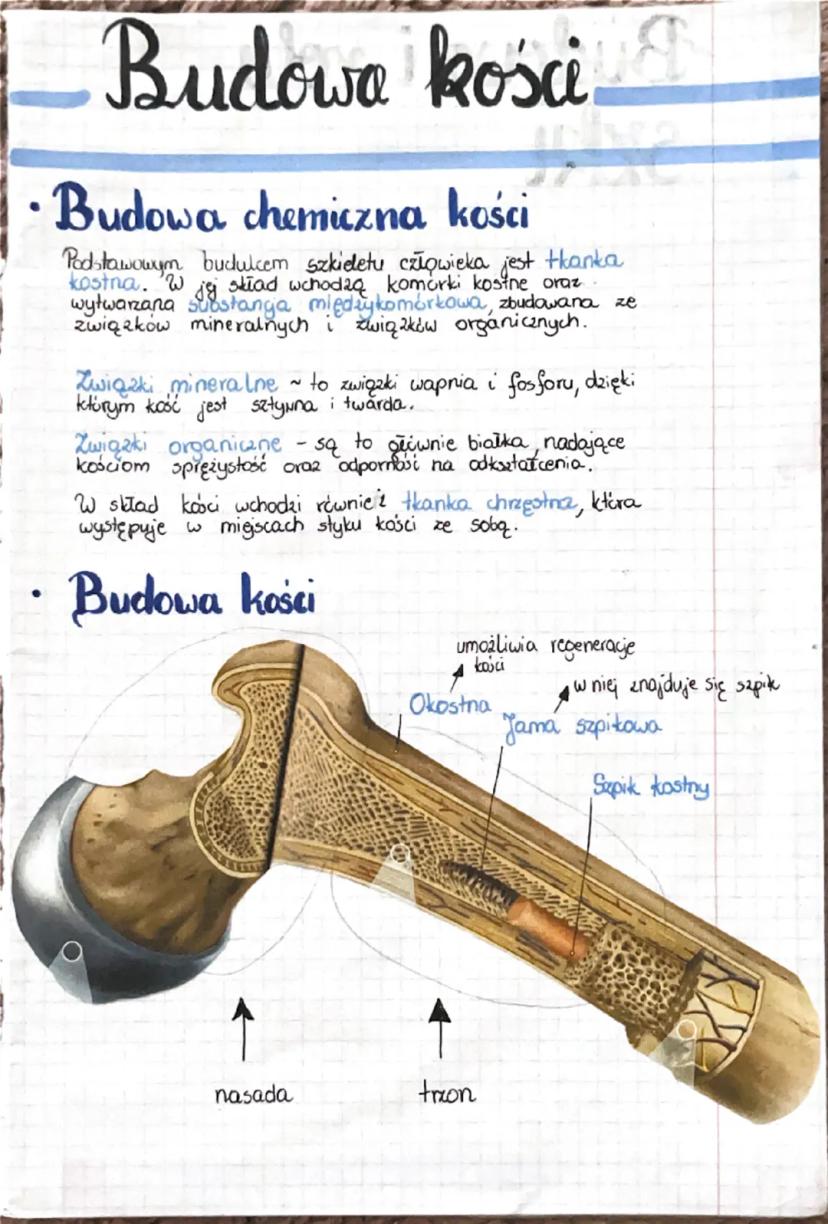 Budowa kości
• Budowa chemiczna kości
Podstawowym budulcem szkieletu człowieka jest tkanka
kostna. W jej skład wchodzą komórki kostne oraz
wytwarzana substancja międzykomórkowa, zbudowana ze
związków mineralnych i związków organicznych.
Związki mineralne ~ to związki wapnia i fosforu, dzięki
którym kość jest sztywna i twarda.
Związki organiczne - są to głównie białka, nadające
kościom sprężystość oraz odporność na odkształcenia.
W skład kości wchodzi również tkanka chrzęstna, która
występuje w miejscach styku kości ze sobą.
• Budowa kości
umożliwia regeneracje
kości
w niej znajduje się szpik
Okostna
Jama szpikowa
Szpik kostny
nasada
trzon